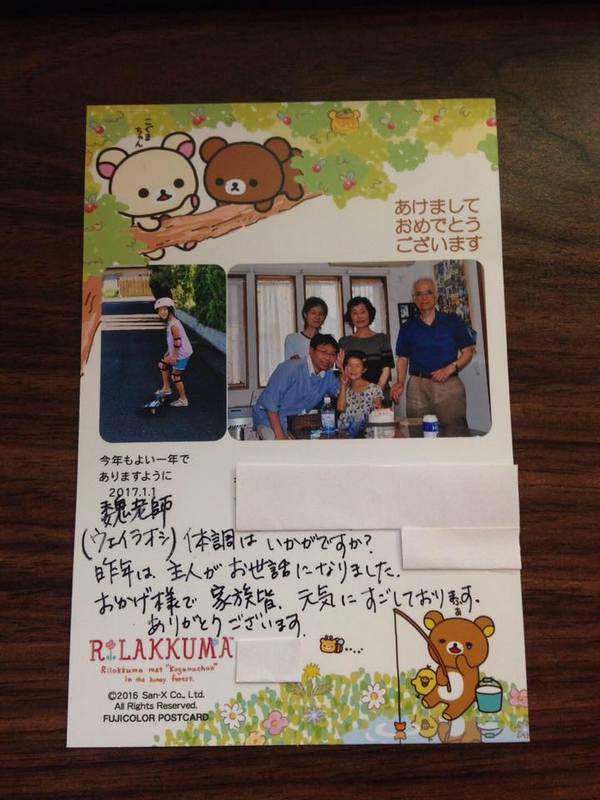 こぐま
ちゃん
あけまして
おめでとう
ございます
今年もよい一年で
ありますように
2017.1.1
魏老師
(ウェイラオシ) 体調は いかがですか?
昨年は 主人が お世話になりました.
おかげ様で 家族皆、元気に すごしております。
ありがとうございます.
RILAKKUMA™
Rilakkuma met "Koguma​chan"
in the honey forest.
©2016 San-X Co., Ltd.
All Rights Reserved.
FUJICOLOR POSTCARD